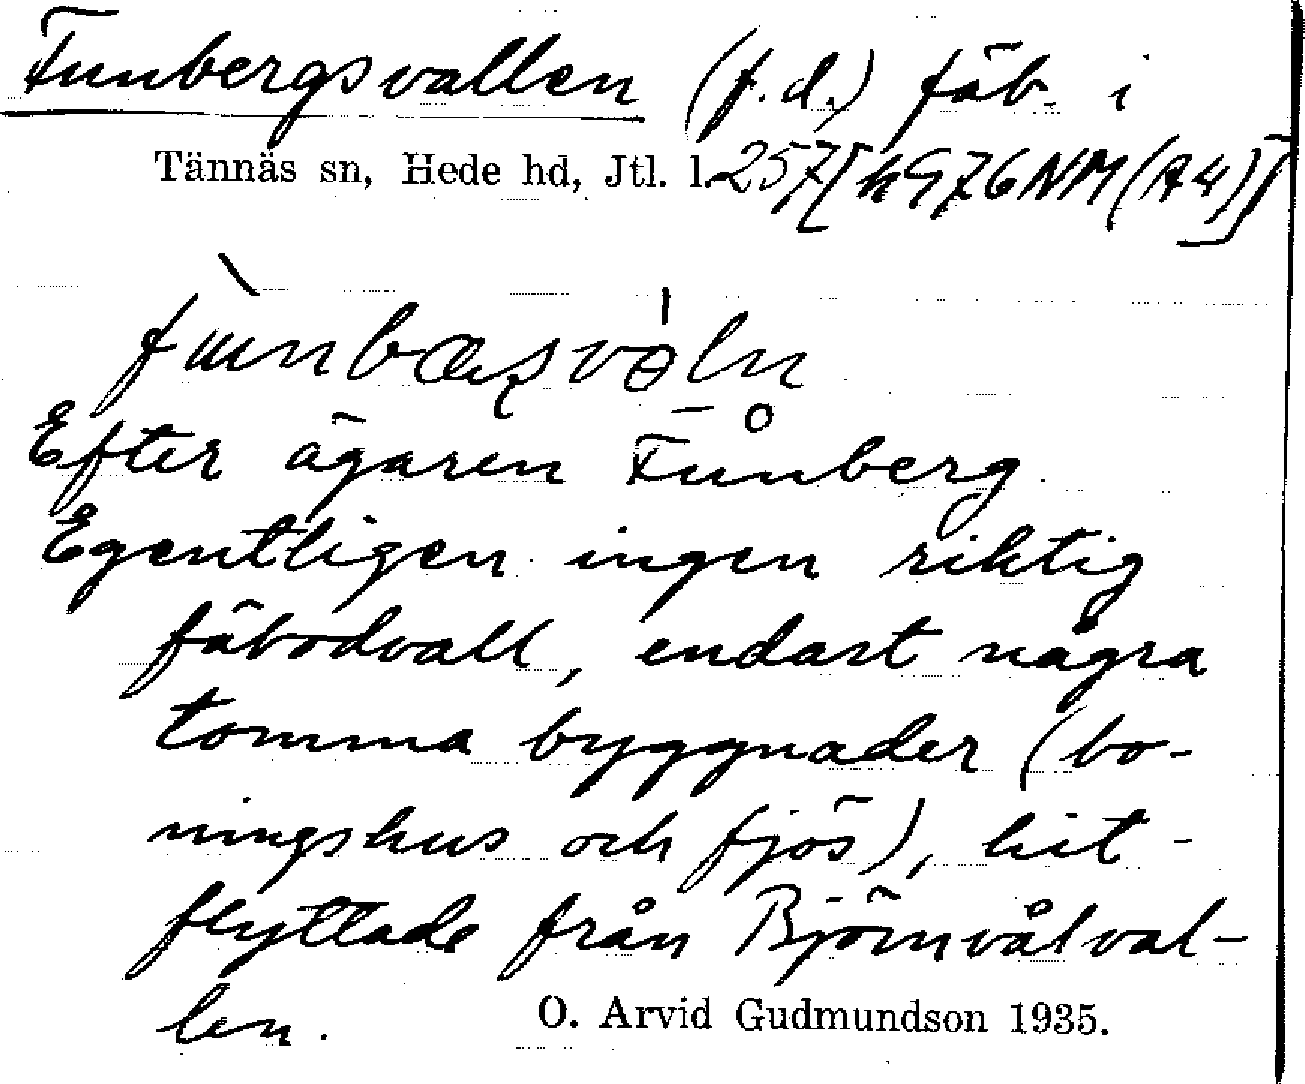 Funbergsvallen (f.d.) fäb. i
Tännäs sn, Hede hd, Jtl. l.
Efter ägaren Funberg.
Egentligen ingen riktig
fäbodvall, endast några
tomma byggnader (bo-
ningshus och fjös), hit-
flyttade från Björnvålval-
len. O. Arvid Gudmundson 1935.